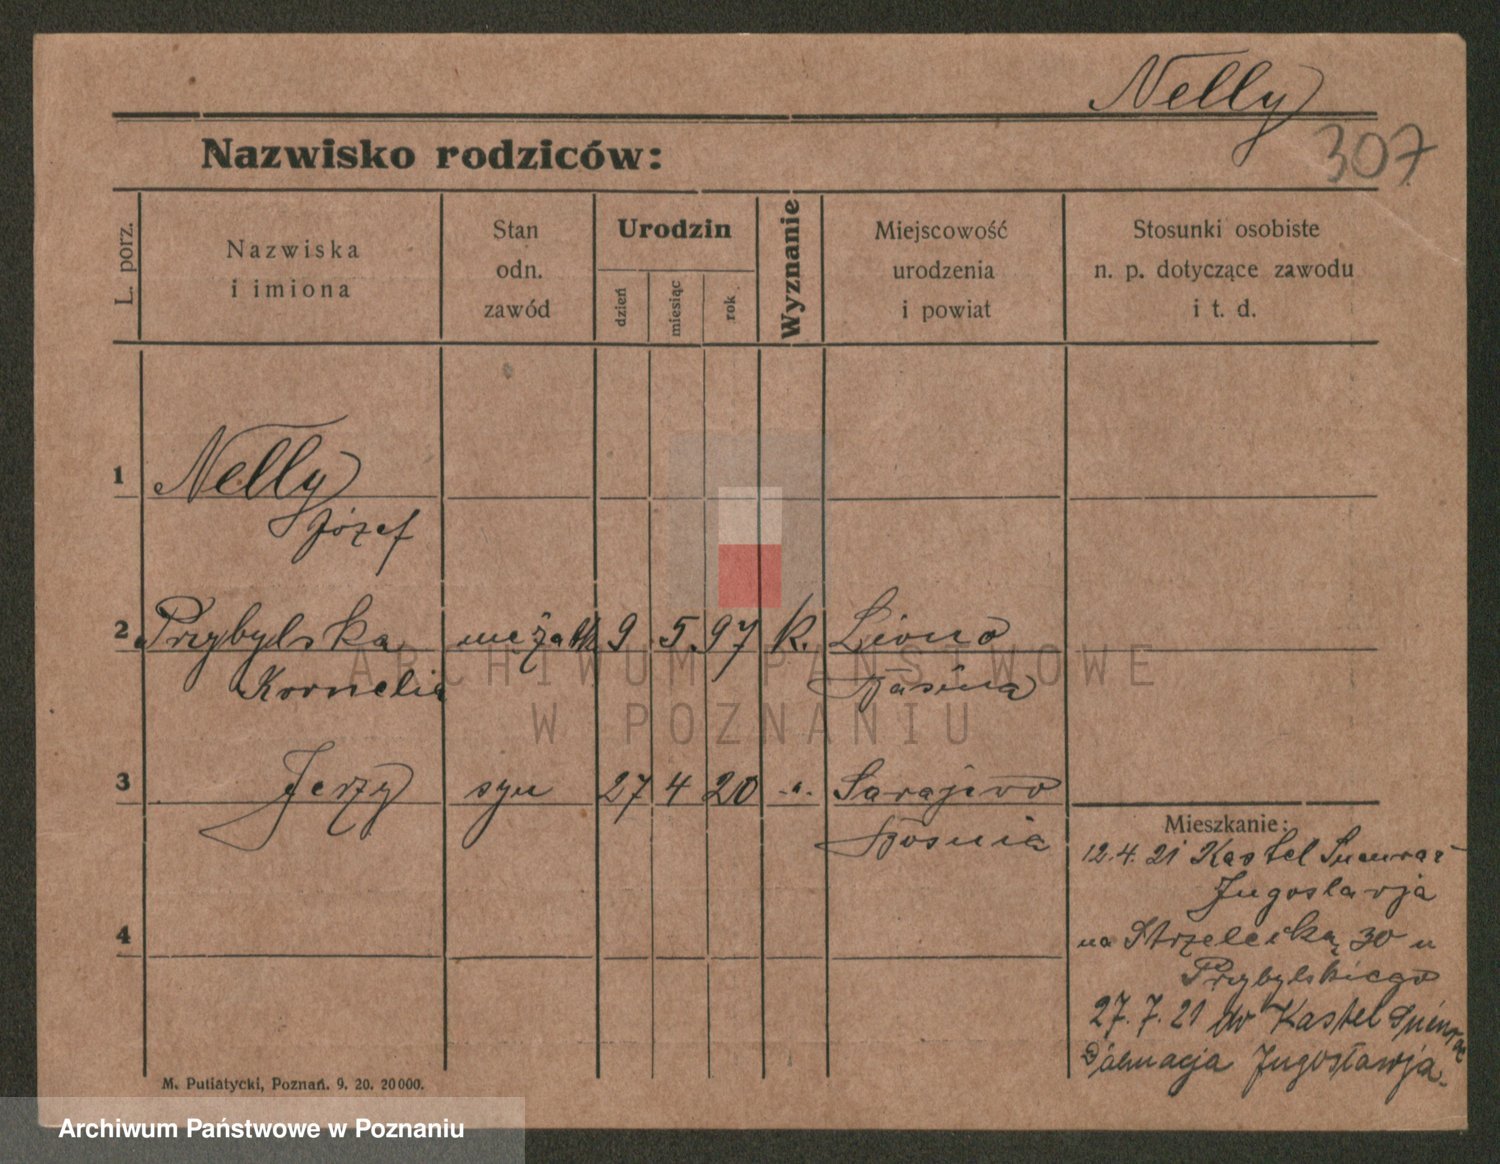 Nelly
307
Nazwisko rodziców:
L. porz.
Nazwiska
i imiona
Stan
odn.
zawód
Urodzin
dzień
miesiąc
rok
Wyznanie
Miejscowość
urodzenia
i powiat
Stosunki osobiste
n. p. dotyczące zawodu
i t. d.
1
Nelly
Józef
2 Przybylska mężatk 9 5 97 k. Livno
Kornelia
3 Jerzy syn 27 4 20 -"- Sarajevo
Bosnia
Mieszkanie:
12.4.21 Kastel
Jugoslavja
na Strzelecką 30 u
Przybylskiego
4
27.7.21 do Kastel
Dalmacja Jugosławja.
M. Putiatycki, Poznań. 9. 20. 20000.
ARCHIWUM PAŃSTWOWE
W POZNANIU
Archiwum Państwowe w Poznaniu